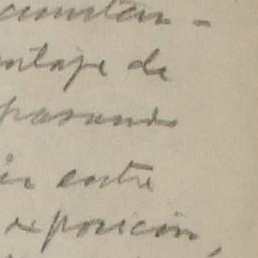 cunstan-
ntaje de
pasando
entre
exposición,